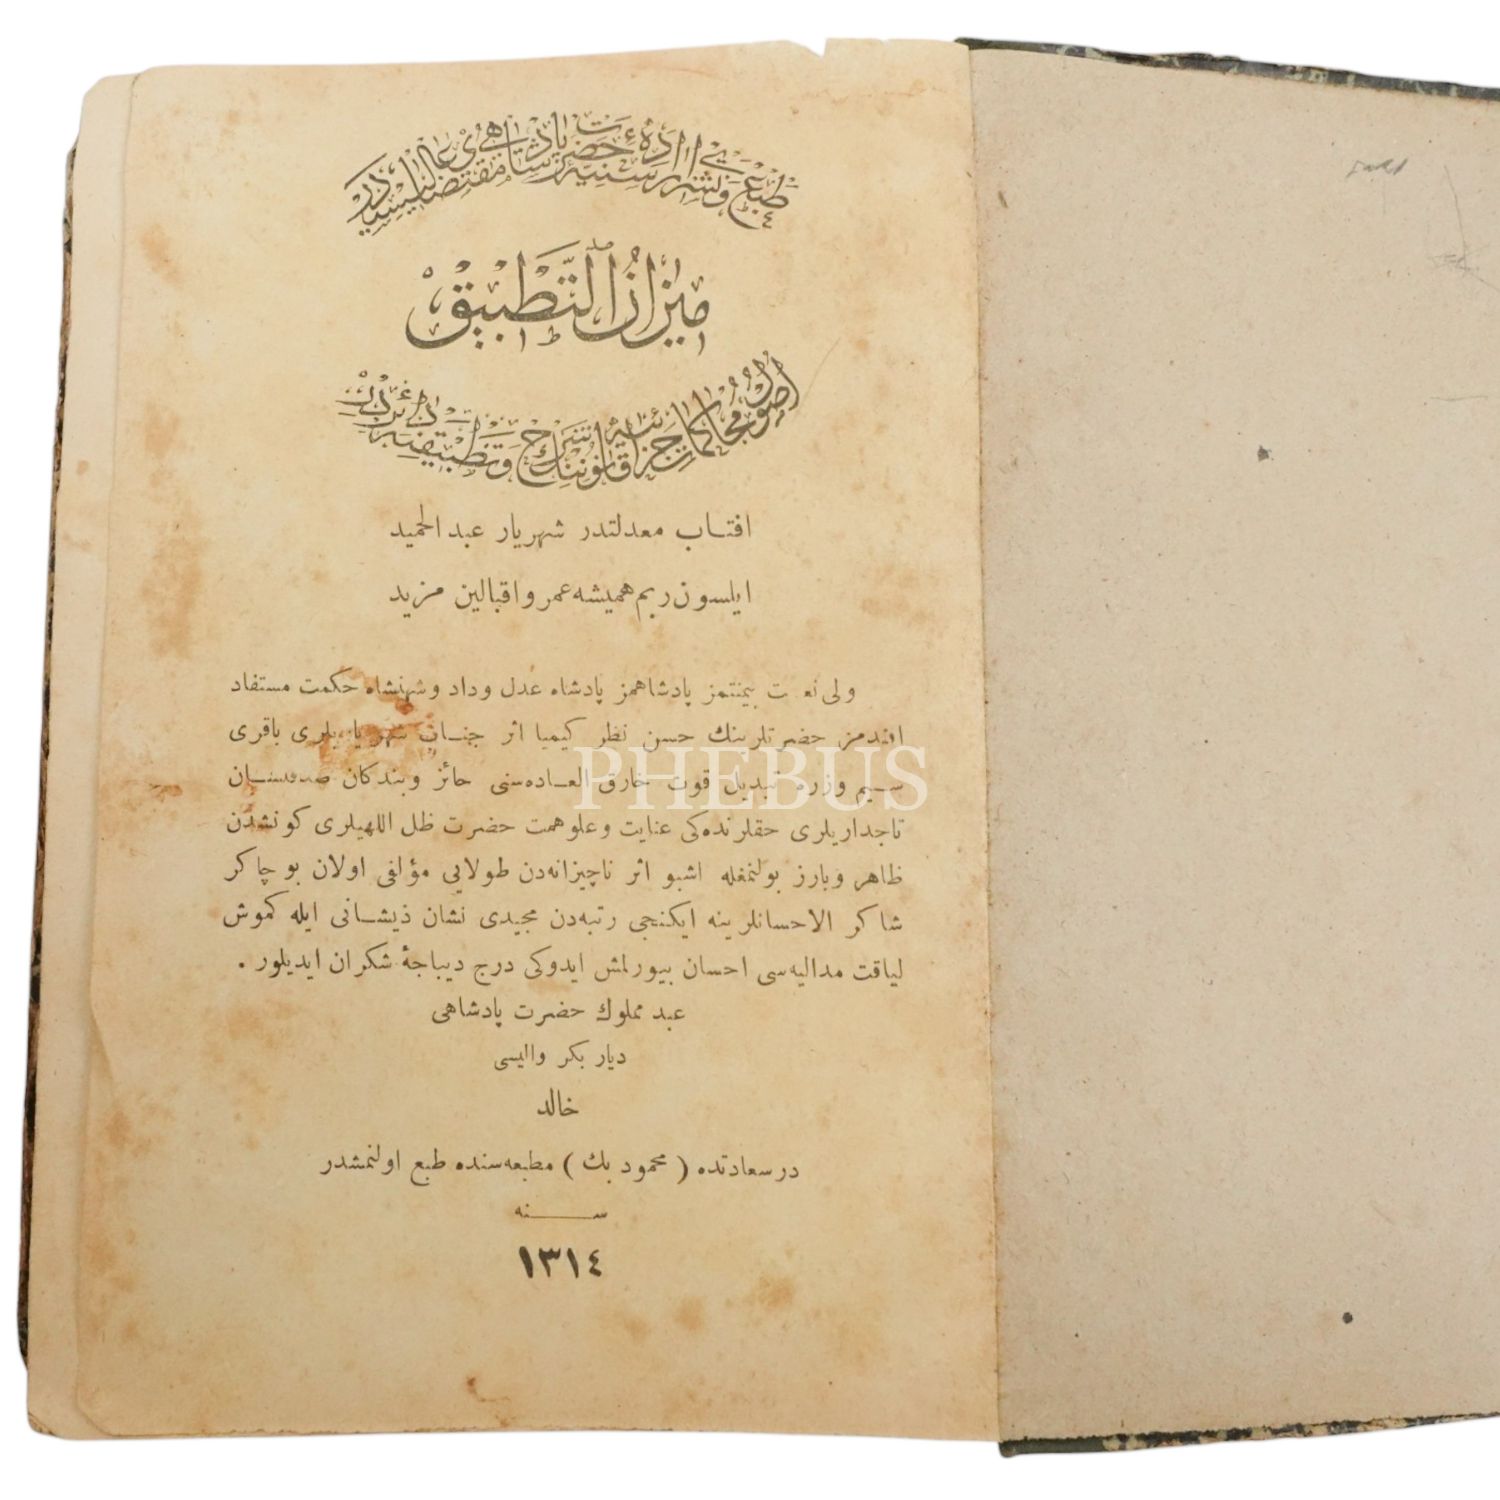 طبع و نشری اراده سنیه حضرت پادشاهی مقتضای عالیسیدر
میزان التطبیق
اصول محاکمات جزائیه قانوننك شرح و تطبیقنه
افتاب معدلتدر شهریار عبدالحمید
ایلسون ربم همیشه عمر واقبالین مزید
ولی نعمت بیمنتمز پادشاهمز پادشاه عدل وداد وشهنشاه حکمت مستفاد
افندمز حضرتلرینك حسن نظر کیمیا اثر جناب شهریاریلری باقری
سیم وزره تبدیل قوت خارق العاده‌سنی حائز وبندکان صدقنشان
تاجداریلری حقلرنده‌کی عنایت وعلوهمت حضرت ظل اللهیلری کونشدن
ظاهر وبارز بولنمغله اشبو اثر ناچیزانه‌دن طولایی مؤلفی اولان بو چاکر
شاکر الاحسانلرینه ایکنجی رتبه‌دن مجیدی نشان ذیشانی ایله کموش
لیاقت مدالیه‌سی احسان بیورلمش ایدوکی درج دیباجهٔ شکران ایدیلور .
عبد مملوك حضرت پادشاهی
دیار بکر والیسی
خالد
درسعادتده ( محمود بك ) مطبعه‌سنده طبع اولنمشدر
سنه
١٣١٤
PHEBUS